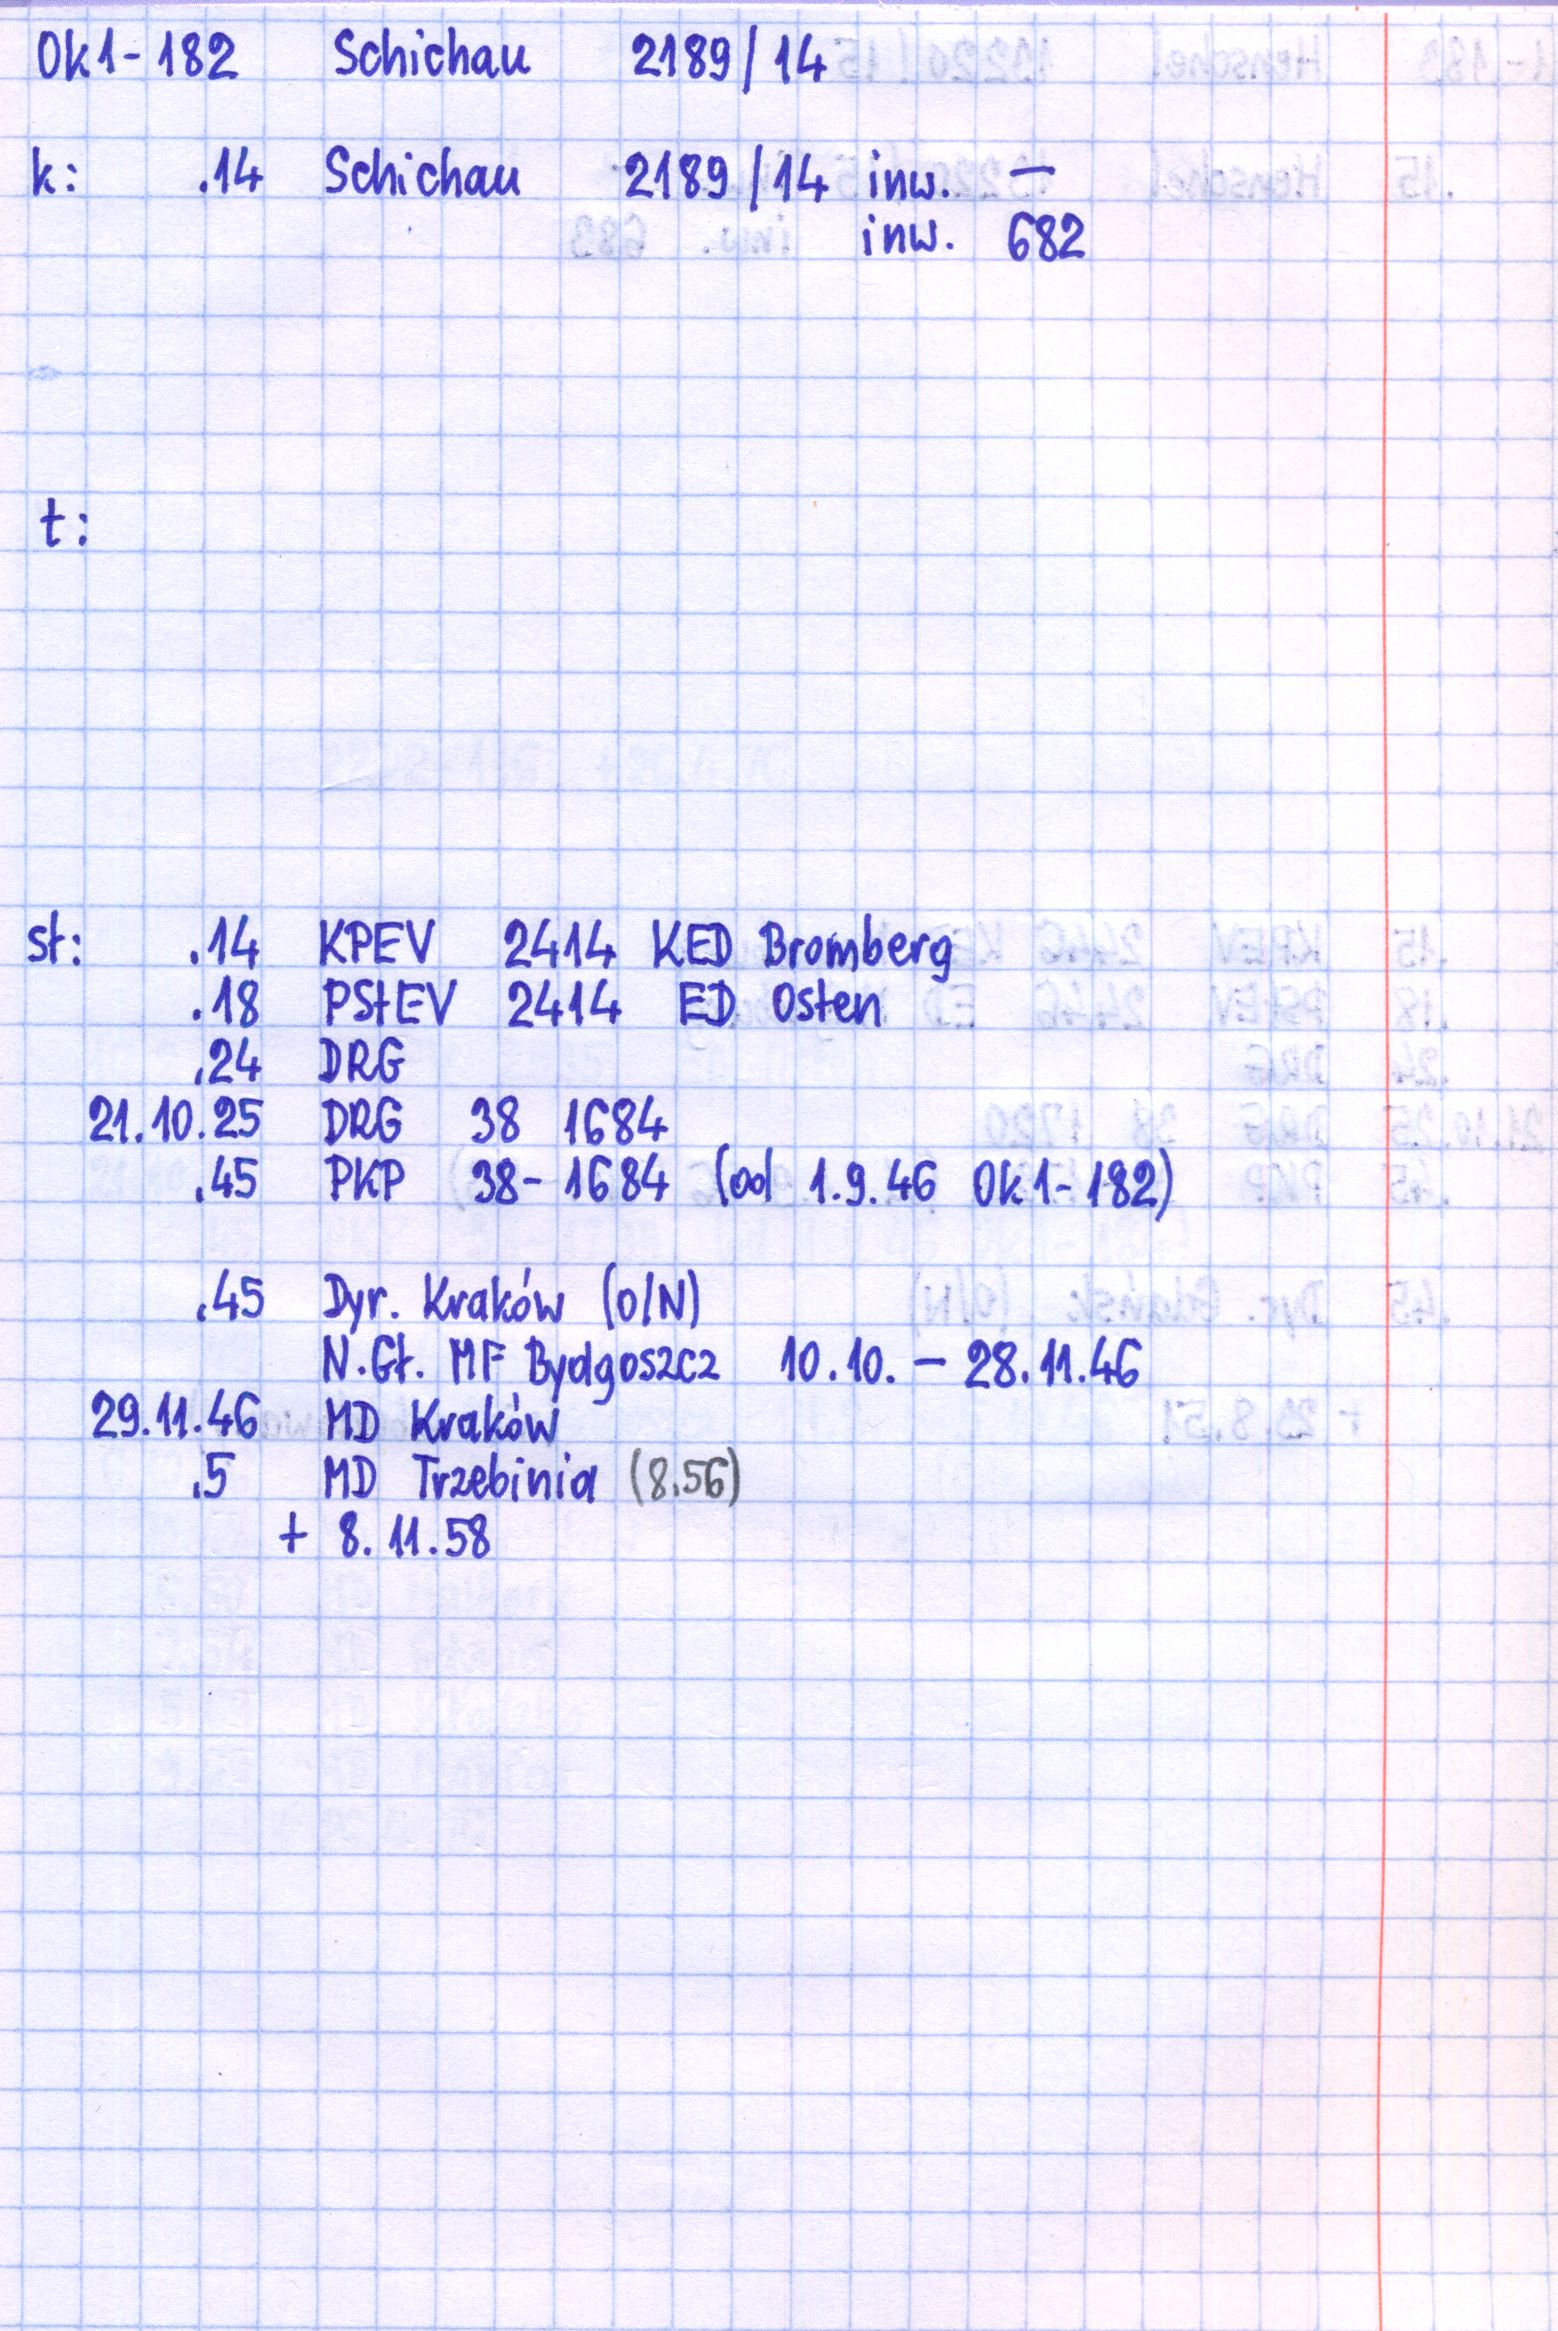 Ok1-182 Schichau 2189/14
k: .14 Schichau 2189/14 inw. —
inw. 682
t:
st: .14 KPEV 2414 KED Bromberg
.18 PStEV 2414 ED Osten
.24 DRG
21.10.25 DRG 38 1684
.45 PKP 38-1684 (od 1.9.46 Ok1-182)
.45 Dyr. Kraków (O/N)
N.Gł. MF Bydgoszcz 10.10. – 28.11.46
29.11.46 MD Kraków
.5 MD Trzebinia (8.56)
+ 8.11.58